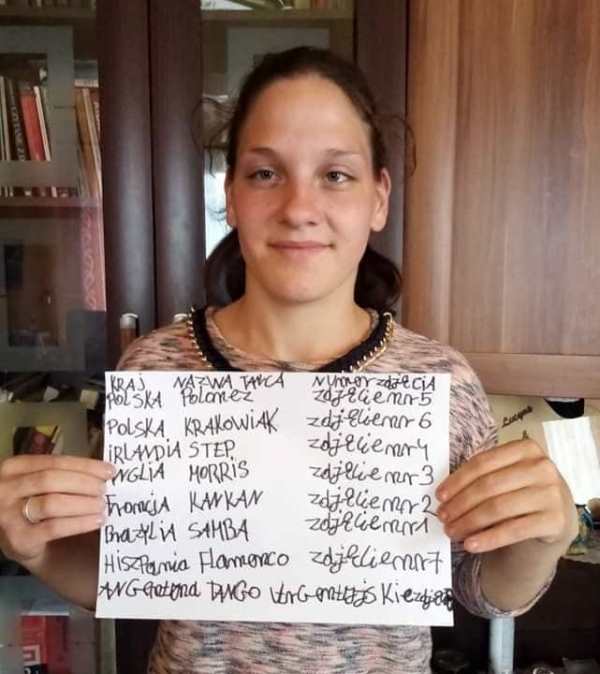 KRAJ NAZWA TAŃCA NUMER zdjęcia
POLSKA Polonez zdjęcie nr 5
POLSKA KRAKOWIAK zdjęcie nr 6
IRLANDIA STEP zdjęcie nr 4
ANGLIA MORRIS zdjęcie nr 3
Francja KANKAN zdjęcie nr 2
Brazylia SAMBA zdjęcie nr 1
Hiszpania Flamenco zdjęcie nr 7
TANGO